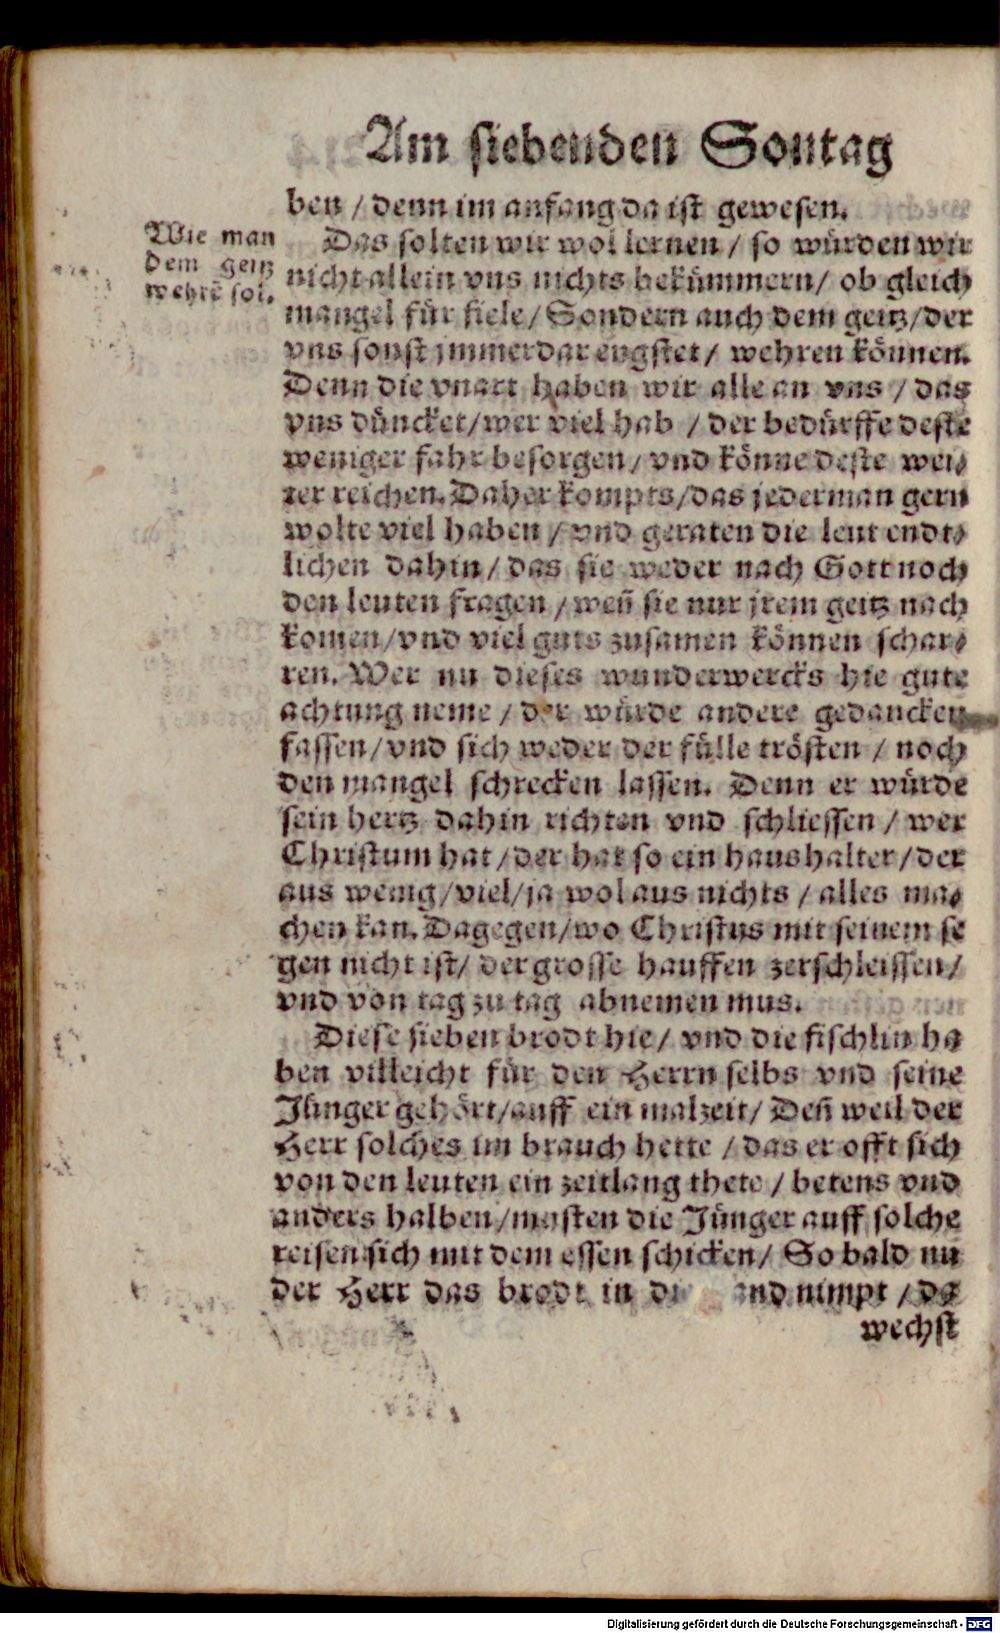 Am siebenden Sontag
ben / denn im anfang da ist gewesen.
Wie man
dem geitz
wehrē sol.
Das solten wir wol lernen / so würden wir
nicht allein vns nichts bekümmern / ob gleich
mangel für fiele / Sondern auch dem geitz / der
vns sonst jmmerdar engstet / wehren können.
Denn die vnart haben wir alle an vns / das
vns düncket / wer viel hab / der bedürffe deste
weniger fahr besorgen / vnd könne deste wei⸗
ter reichen. Daher kompts / das jederman gern
wolte viel haben / vnd geraten die leut endt⸗
lichen dahin / das sie weder nach Gott noch
den leuten fragen / weñ sie nur jrem geitz nach
komen / vnd viel guts zusamen können schar⸗
ren. Wer nu dieses wunderwercks hie gute
achtung neme / der würde andere gedancken
fassen / vnd sich weder der fülle trösten / noch
den mangel schrecken lassen. Denn er würde
sein hertz dahin richten vnd schliessen / wer
Christum hat / der hat so ein haushalter / der
aus wenig / viel / ja wol aus nichts / alles ma⸗
chen kan. Dagegen / wo Christus mit seinem se
gen nicht ist / der grosse hauffen zerschleissen /
vnd von tag zu tag abnemen mus.
Diese sieben brodt hie / vnd die fischlin ha
ben villeicht für den Herrn selbs vnd seine
Jünger gehört / auff ein malzeit / Deñ weil der
Herr solches im brauch hette / das er offt sich
von den leuten ein zeitlang thete / betens vnd
anders halben / musten die Jünger auff solche
reisen sich mit dem essen schicken / So bald nu
der Herr das brodt in nimpt / da
wechst
Digitalisierung gefördert durch die Deutsche Forschungsgemeinschaft - DFG